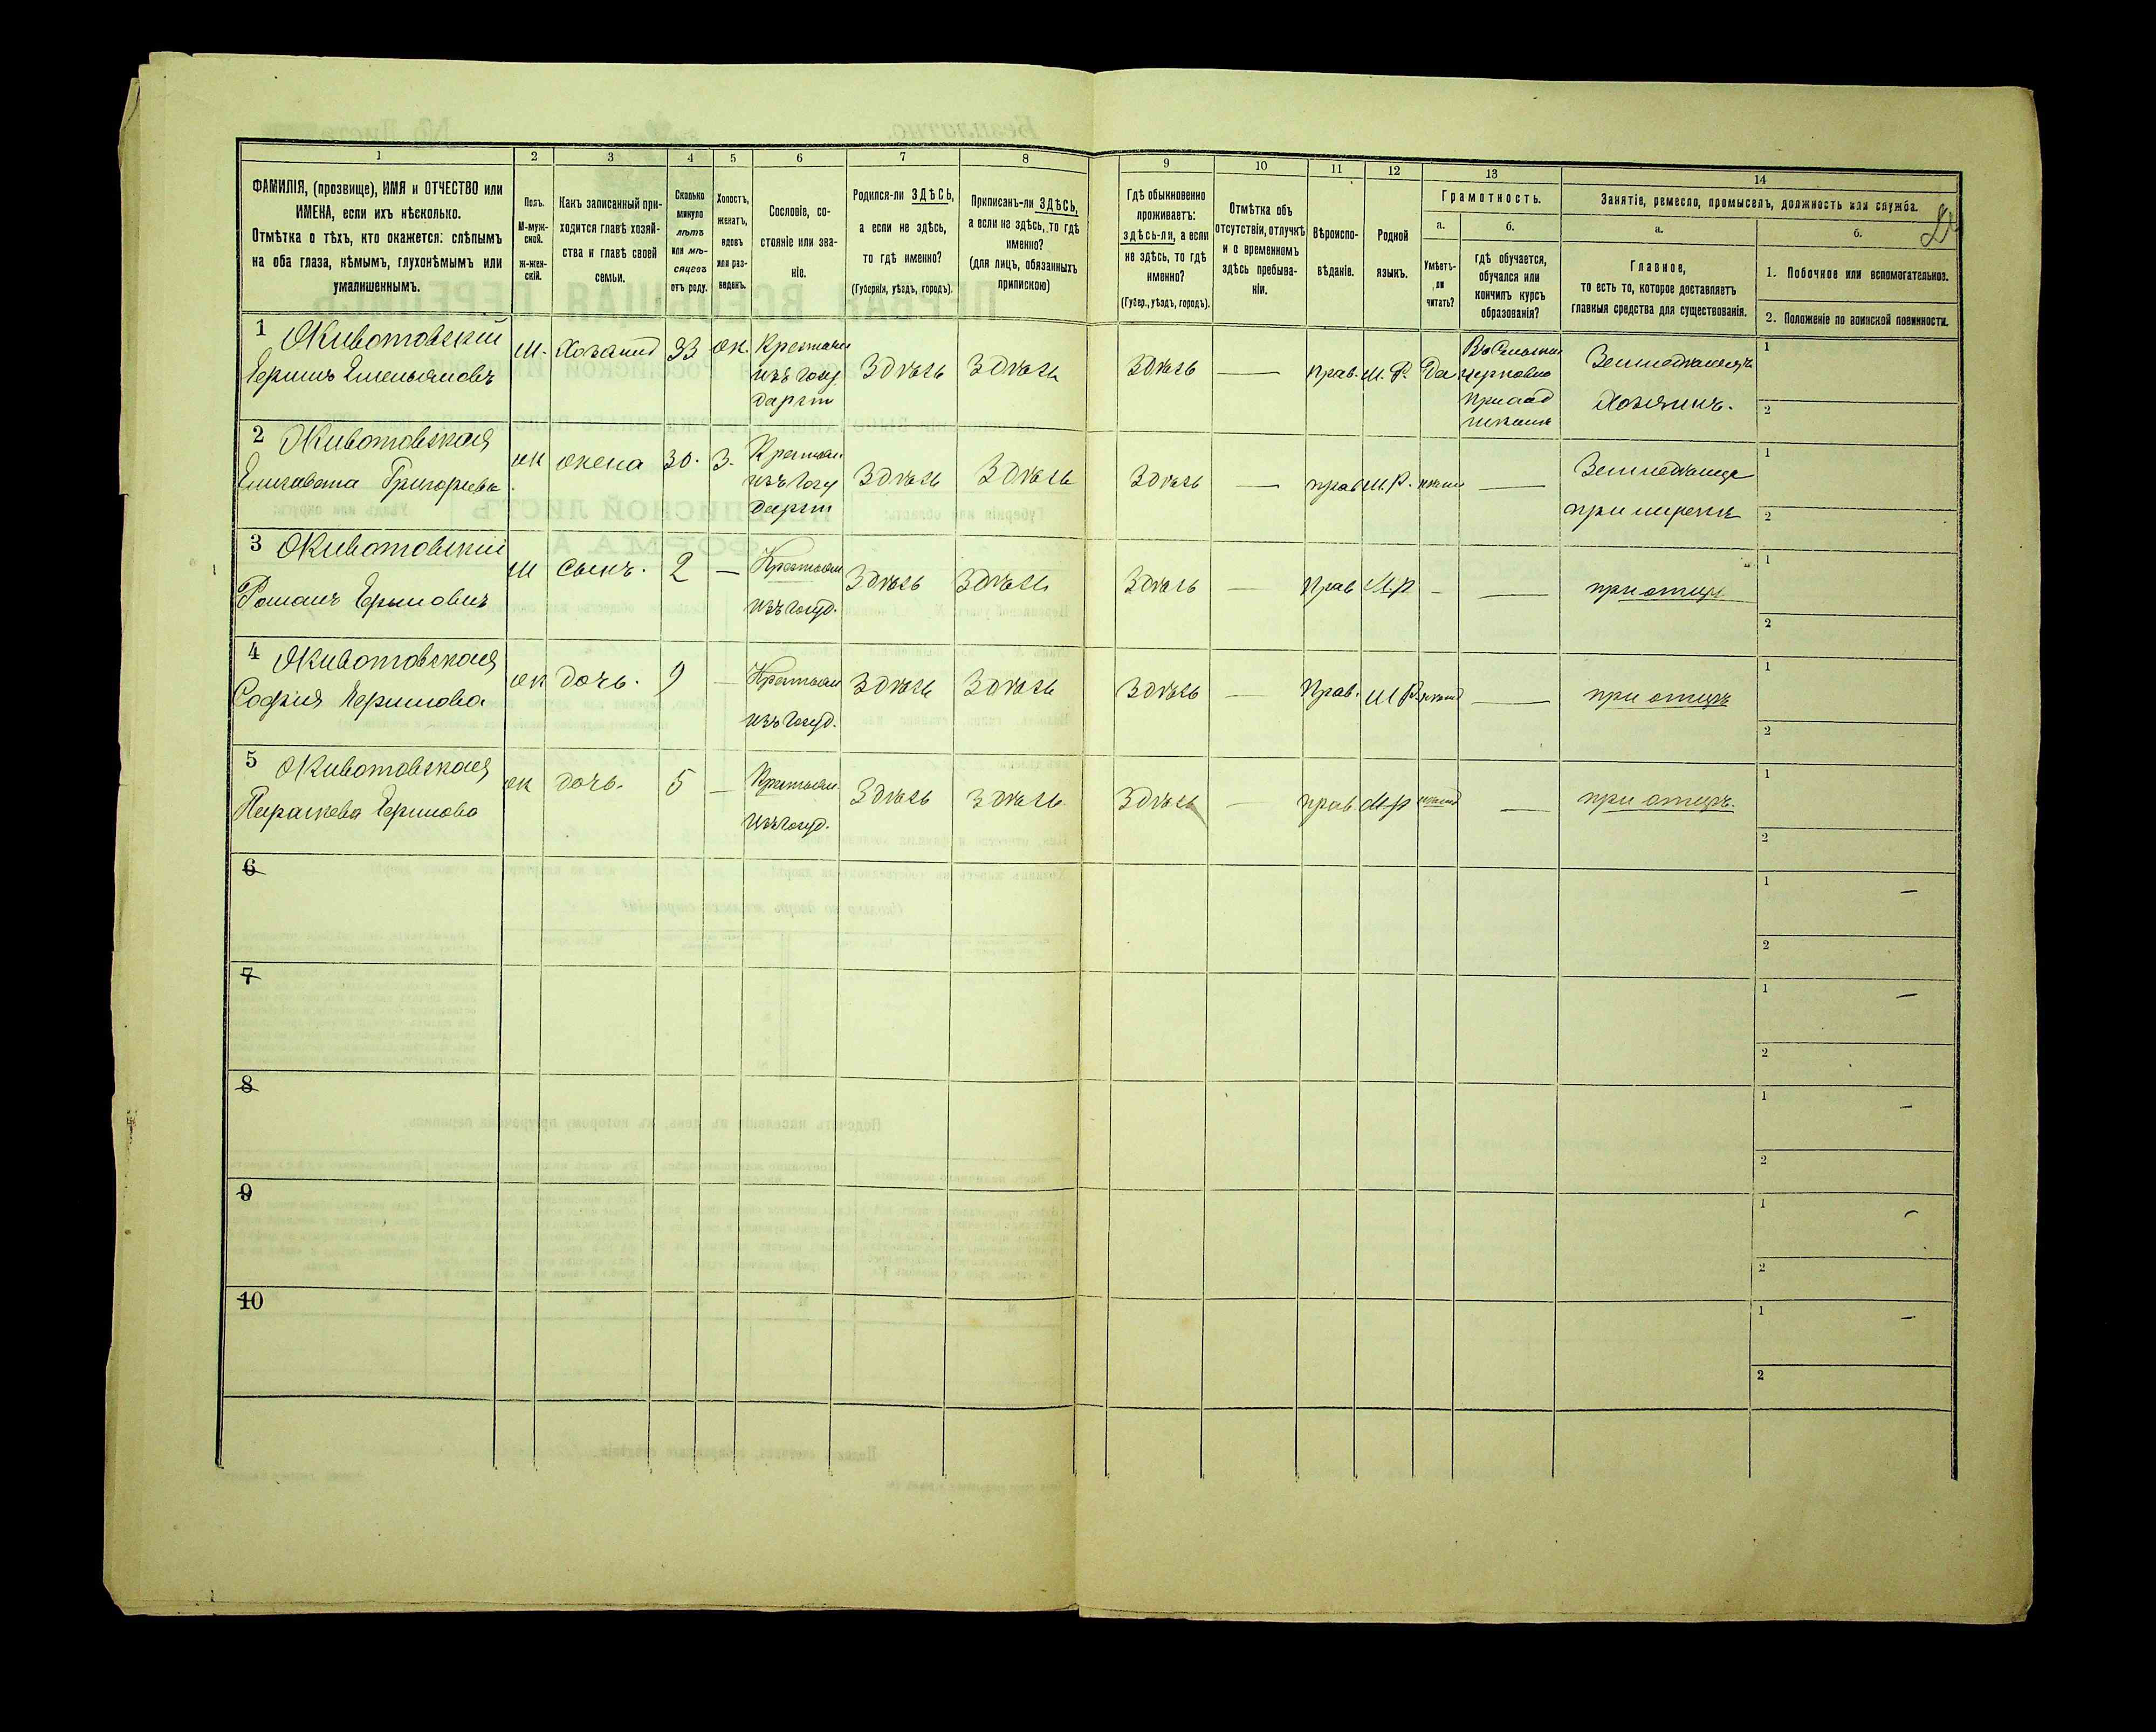 1 2 3 4 5 6 7 8 9 10 11 12 13 14
ФАМИЛІЯ, (прозвище), ИМЯ и ОТЧЕСТВО или
ИМЕНА, если ихъ нѣсколько.
Отмѣтка о тѣхъ, кто окажется: слѣпымъ
на оба глаза, нѣмымъ, глухонѣмымъ или
умалишеннымъ.
Полъ.
М-муж-
ской.
ж-жен-
скій.
Какъ записанный при-
ходится главѣ хозяй-
ства и главѣ своей
семьи.
Сколько
минуло
лѣтъ
или мѣ-
сяцевъ
отъ роду.
Холостъ,
женатъ,
вдовъ
или раз-
веденъ.
Сословіе, со-
стояніе или зва-
ніе.
Родился-ли ЗДѢСЬ,
а если не здѣсь,
то гдѣ именно?
(Губернія, уѣздъ, городъ).
Приписанъ-ли ЗДѢСЬ,
а если не здѣсь, то гдѣ
именно?
(для лицъ, обязанныхъ
припискою)
Гдѣ обыкновенно
проживаетъ:
здѣсь-ли, а если
не здѣсь, то гдѣ
именно?
(Губер., уѣздъ, городъ).
Отмѣтка объ
отсутствіи, отлучкѣ
и о временномъ
здѣсь пребыва-
ніи.
Вѣроиспо-
вѣданіе.
Родной
языкъ.
Грамотность.
а.
Умѣетъ-
ли
читать?
б.
гдѣ обучается,
обучался или
кончилъ курсъ
образованія?
Занятіе, ремесло, промыселъ, должность или служба.
а.
Главное,
то есть то, которое доставляетъ
главныя средства для существованія.
б.
1. Побочное или вспомогательное.
2. Положеніе по воинской повинности.
1 Животовскій
Емельяновъ
м. 33 ж. Крестьян
изъ госу
дарст
Здѣсь Здѣсь Здѣсь — прав. М. Р. Да
Хозяинъ.
1
2
2 Животовская
Елисавета Григорьева
ж жена 30. З. Крестьян
изъ госу
дарст
Здѣсь Здѣсь Здѣсь — прав М. Р. —
1
2
3 Животовскій
Романъ
м сынъ. 2 — Крестьян
изъ госуд.
Здѣсь Здѣсь Здѣсь — прав М.р — — при отцѣ
1
2
4 Животовская
София
ж дочь. 9 — Крестьян
изъ госуд.
Здѣсь Здѣсь Здѣсь — Прав. М Р. — при отцѣ
1
2
5 Животовская
Параскева
ж дочь. 5 — Крестьян
изъ госуд.
Здѣсь Здѣсь Здѣсь — прав М.р — при отцѣ.
1
2
6
1 —
2
7
1 —
2
8
1 —
2
9
1 —
2
10
1 —
2